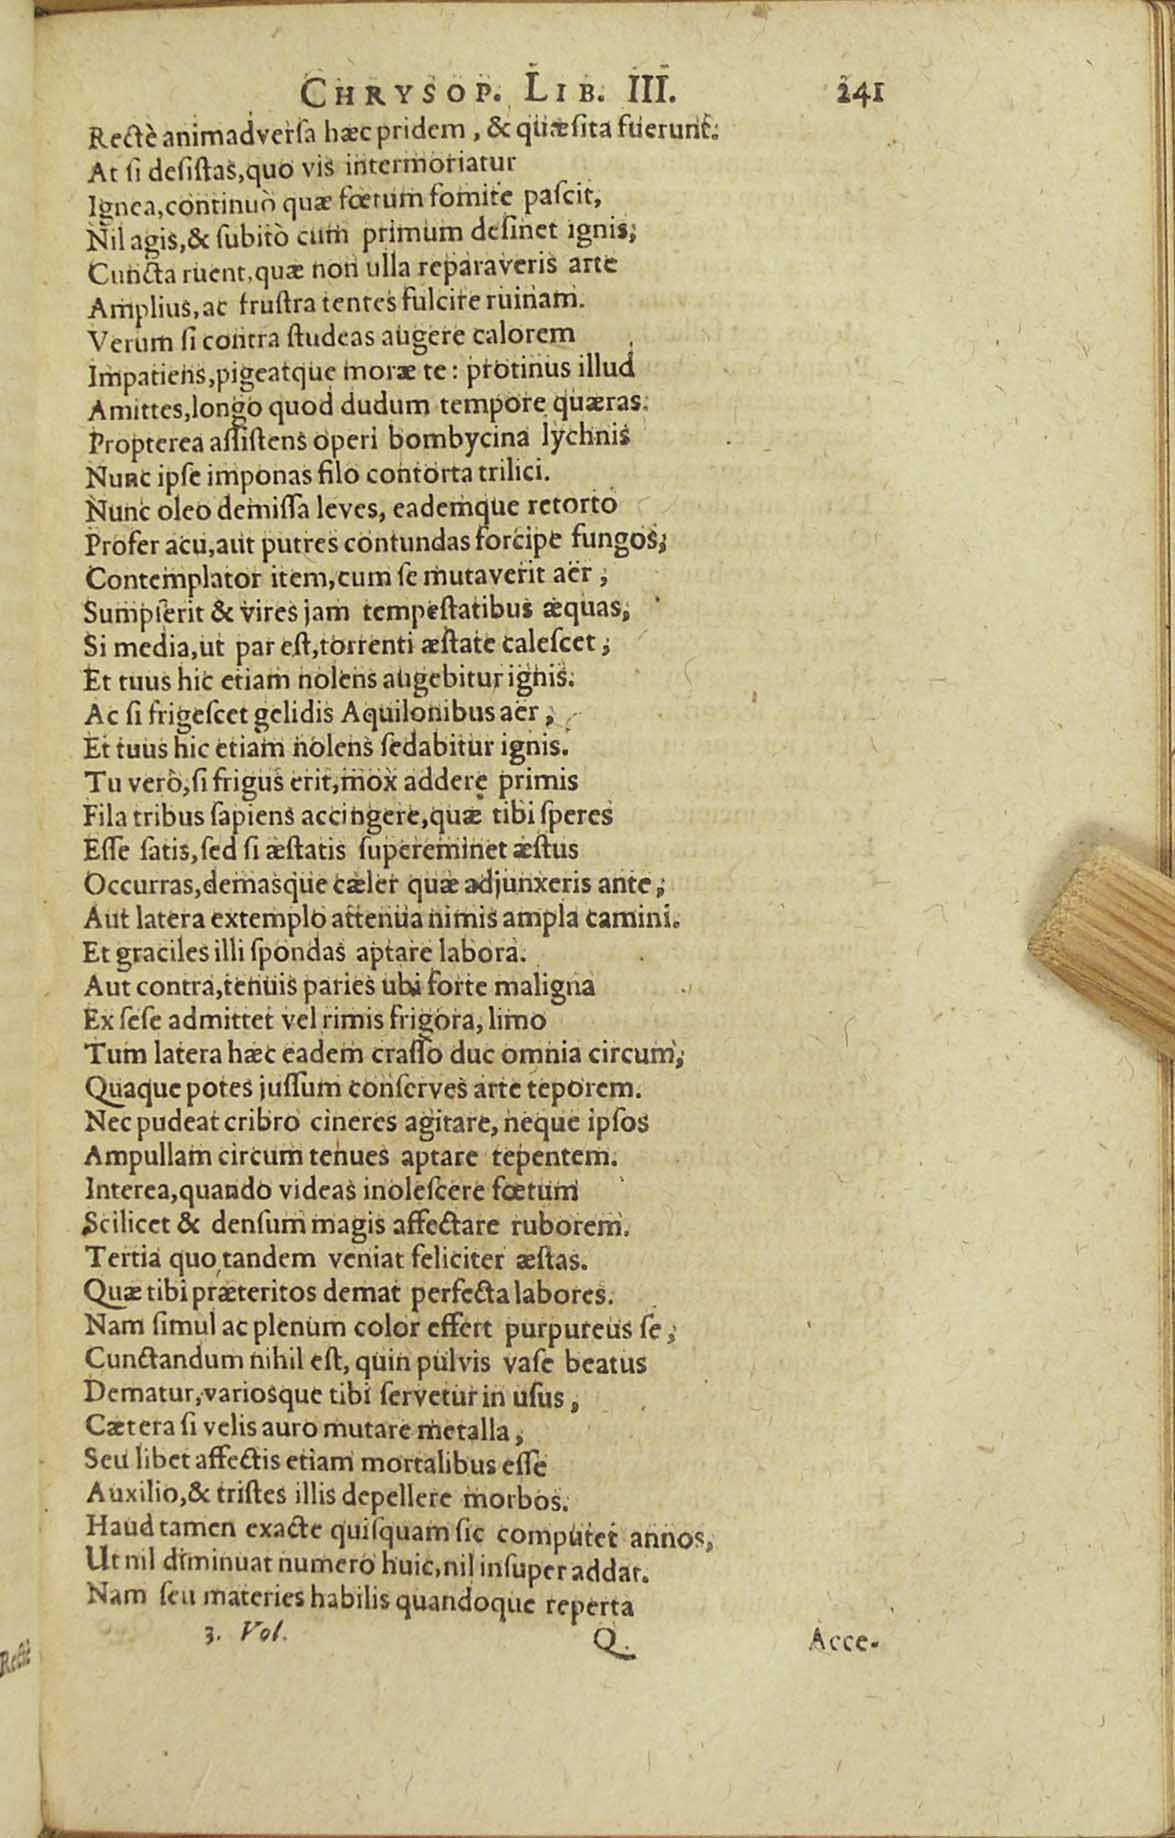 CHRYSOP. LIB. III. 241
Rectè animadversa hæc pridem, & quæsita fuerunt.
At si desistas, quo vis intermoriatur
Ignea, continuò quæ fœtum fomite pascit,
Nil agis, & subitò cum primum desinet ignis;
Cuncta ruent, quæ non ulla reparaveris arte
Amplius, ac frustra tentes fulcire ruinam.
Verum si contra studeas augere calorem
Impatiens, pigeatque moræ te: protinus illud
Amittes, longo quod dudum tempore quæras.
Propterea assistens operi bombycina lychnis
Nunc ipse imponas filo contorta trilici.
Nunc oleo demissa leves, eademque retorto
Profer acu, aut putres contundas forcipe fungos;
Contemplator item, cum se mutaverit aër;
Sumpserit & vires jam tempestatibus æquas;
Si media, ut par est, torrenti æstate calescet;
Et tuus hic etiam nolens augebitur ignis.
Ac si frigescet gelidis Aquilonibus aër;
Et tuus hic etiam nolens sedabitur ignis.
Tu verò, si frigus erit, mox addere primis
Fila tribus sapiens accingere, quæ tibi speres
Esse satis, sed si æstatis supereminet æstus
Occurras, demasque cæler quæ adjunxeris ante;
Aut latera extemplo attenua nimis ampla camini.
Et graciles illi spondas aptare labora.
Aut contra, tenuis paries ubi forte maligna
Ex sese admittet vel rimis frigora, limo
Tum latera hæc eadem crasso duc omnia circum;
Quaque potes jussum conserves arte teporem.
Nec pudeat cribro cineres agitare, neque ipsos
Ampullam circum tenues aptare tepentem.
Interea, quando videas inolescere fœtum
Scilicet & densum magis affectare ruborem.
Tertia quo tandem veniat feliciter æstas.
Quæ tibi præteritos demat perfecta labores.
Nam simul ac plenum color effert purpureus se;
Cunctandum nihil est, quin pulvis vase beatus
Dematur, variosque tibi servetur in usus,
Cætera si velis auro mutare metalla,
Seu libet affectis etiam mortalibus esse
Auxilio, & tristes illis depellere morbos.
Haud tamen exacte quisquam sic computet annos,
Ut nil diminuat numero huic, nil insuper addat.
Nam seu materies habilis quandoque reperta
3. Vol. Q Acce-